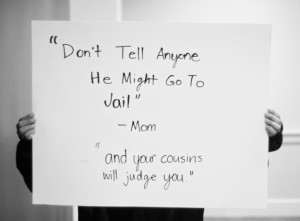 "Don't Tell Anyone
He Might Go To
Jail"
- Mom
"and your cousins
will judge you."